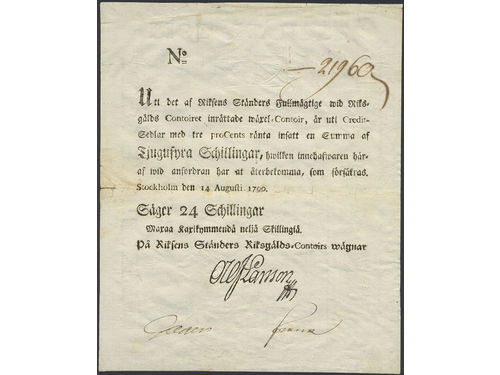 No
21960
Uti det af Riksens Ständers Fullmägtige wid Riks-
gälds Contoiret inrättade wäxel-Contoir, är uti Credit-
Sedlar med tre proCents ränta insatt en Summa af
Tjugufyra Schillingar, hwilken innehafwaren här-
af wid anfordran har at återbekomma, som försäkras.
Stockholm den 14 Augusti 1790.
Säger 24 Schillingar
Maxaa Kaxikymmendä neljä Skillingiä.
På Riksens Ständers Riksgälds-Contoirs wägnar